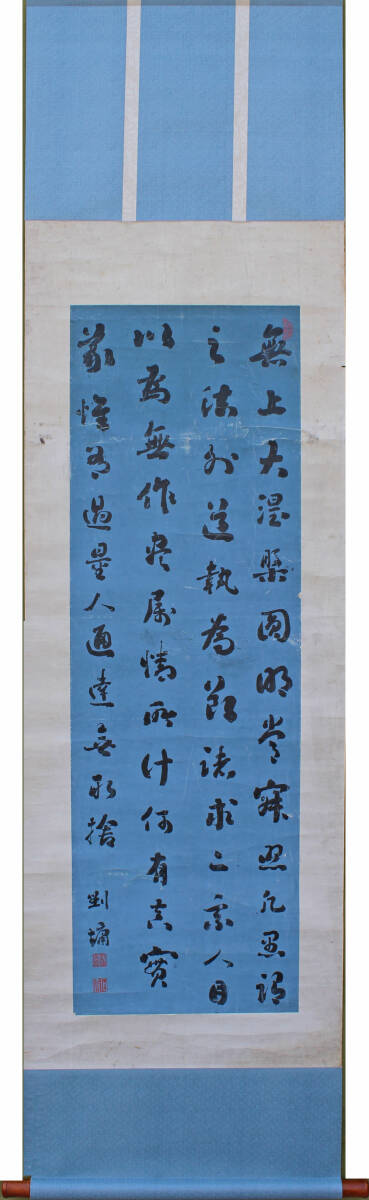 無上大涅槃圓明常寂照凡愚謂
之法外道執為斷諸求二乘人目
以為無作盡屬情所計何有真實
義惟有過量人通達無取捨
劉墉